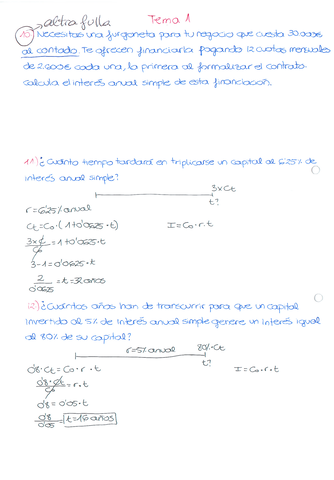 altra fulla
Tema 1
10) Necesitas una furgoneta para tu negocio que cuesta 30.000€
al contado. Te ofrecen financiarla pagando 12 cuotas mensuales
de 2.600€ cada una, la primera al formalizar el contrato.
Calcula el interés anual simple de esta financiación.
11) ¿Cuánto tiempo tardará en triplicarse un capital al 6'25% de
interés anual simple?
3xCt
t?
r=6'25% anual
Ct=Co·(1+0'0625·t) I=Co·r·t
3x₵/₵o = 1+0'0625·t
3-1=0'0625·t
2/0'0625 = t = 32 años
12) ¿Cuántos años han de transcurrir para que un capital
invertido al 5% de interés anual simple genere un interés igual
al 80% de su capital?
r=5% anual 80%Ct
t?
0'8·Ct=Co·r·t I=Co·r·t
0'8·₵t/₵o = r·t
0'8=0'05·t
0'8/0'05 = t=16 años